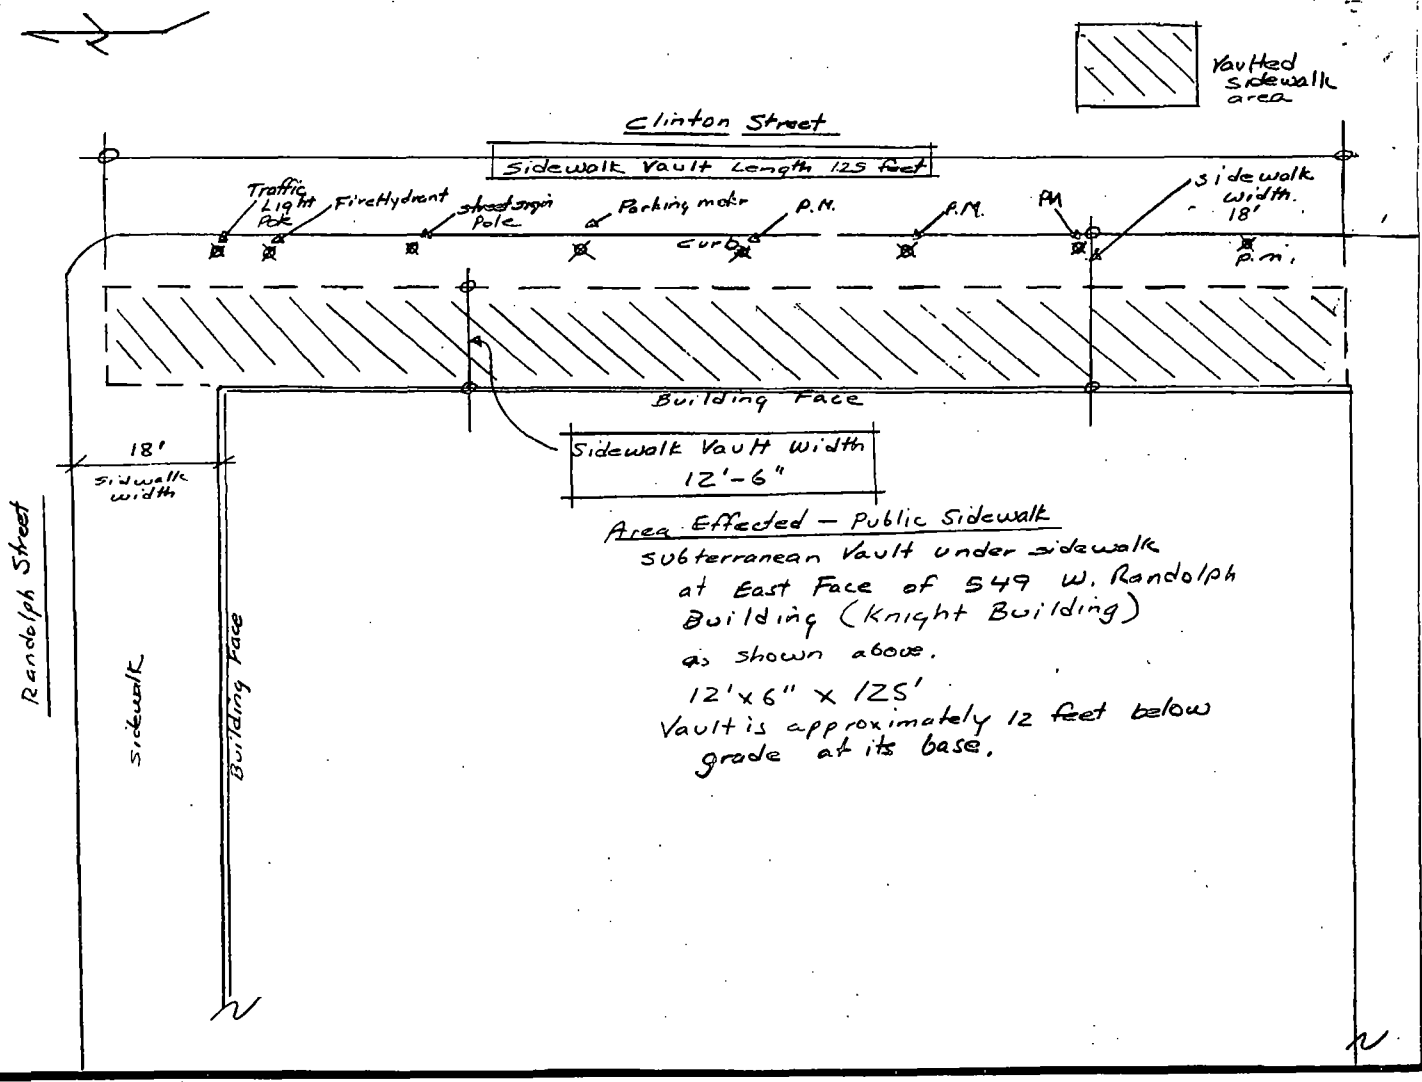 Vaulted
sidewalk
area
Clinton Street
Sidewalk Vault Length 125 feet
Traffic
Light
Pole
Fire Hydrant
street sign
Pole
Parking meter
P.M.
P.M.
PM
sidewalk
width.
18'
curb
P.M.
Building Face
Sidewalk Vault Width
12'-6"
18'
sidwalk
width
Area Effected - Public Sidewalk
subterranean Vault under sidewalk
at East Face of 549 W. Randolph
Building (Knight Building)
as shown above.
12'x6" x 125'
Vault is approximately 12 feet below
grade at its base.
Randolph Street
sidewalk
Building Face
N
N